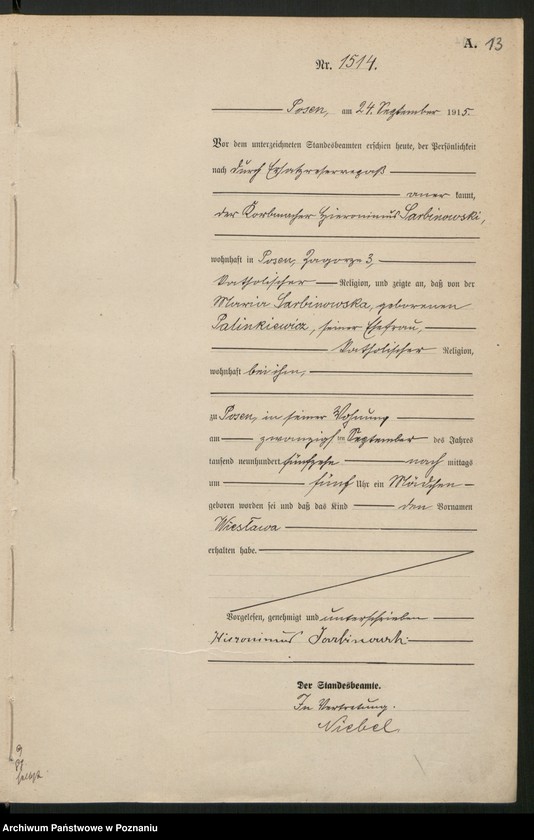 A. 13
Nr. 1514.
Posen, am 24. September 1915.
Vor dem unterzeichneten Standesbeamten erschien heute, der Persönlichkeit
nach durch Ersatzreservepaß
aner kannt,
der Korbmacher Hieronimus Sarbinowski,
wohnhaft in Posen, Zagorze 3,
katholischer Religion, und zeigte an, daß von der
Maria Sarbinowska, geborenen
Palinkiewicz, seiner Ehefrau,
katholischer Religion,
wohnhaft bei ihm,
zu Posen, in seiner Wohnung
am zwanzigsten September des Jahres
tausend neunhundert fünfzehn nach mittags
um fünf Uhr ein Mädchen
geboren worden sei und daß das Kind den Vornamen
Wiesława
erhalten habe.
Vorgelesen, genehmigt und unterschrieben
Hieronimus Sarbinowski
Der Standesbeamte.
In Vertretung.
Niebel
Archiwum Państwowe w Poznaniu